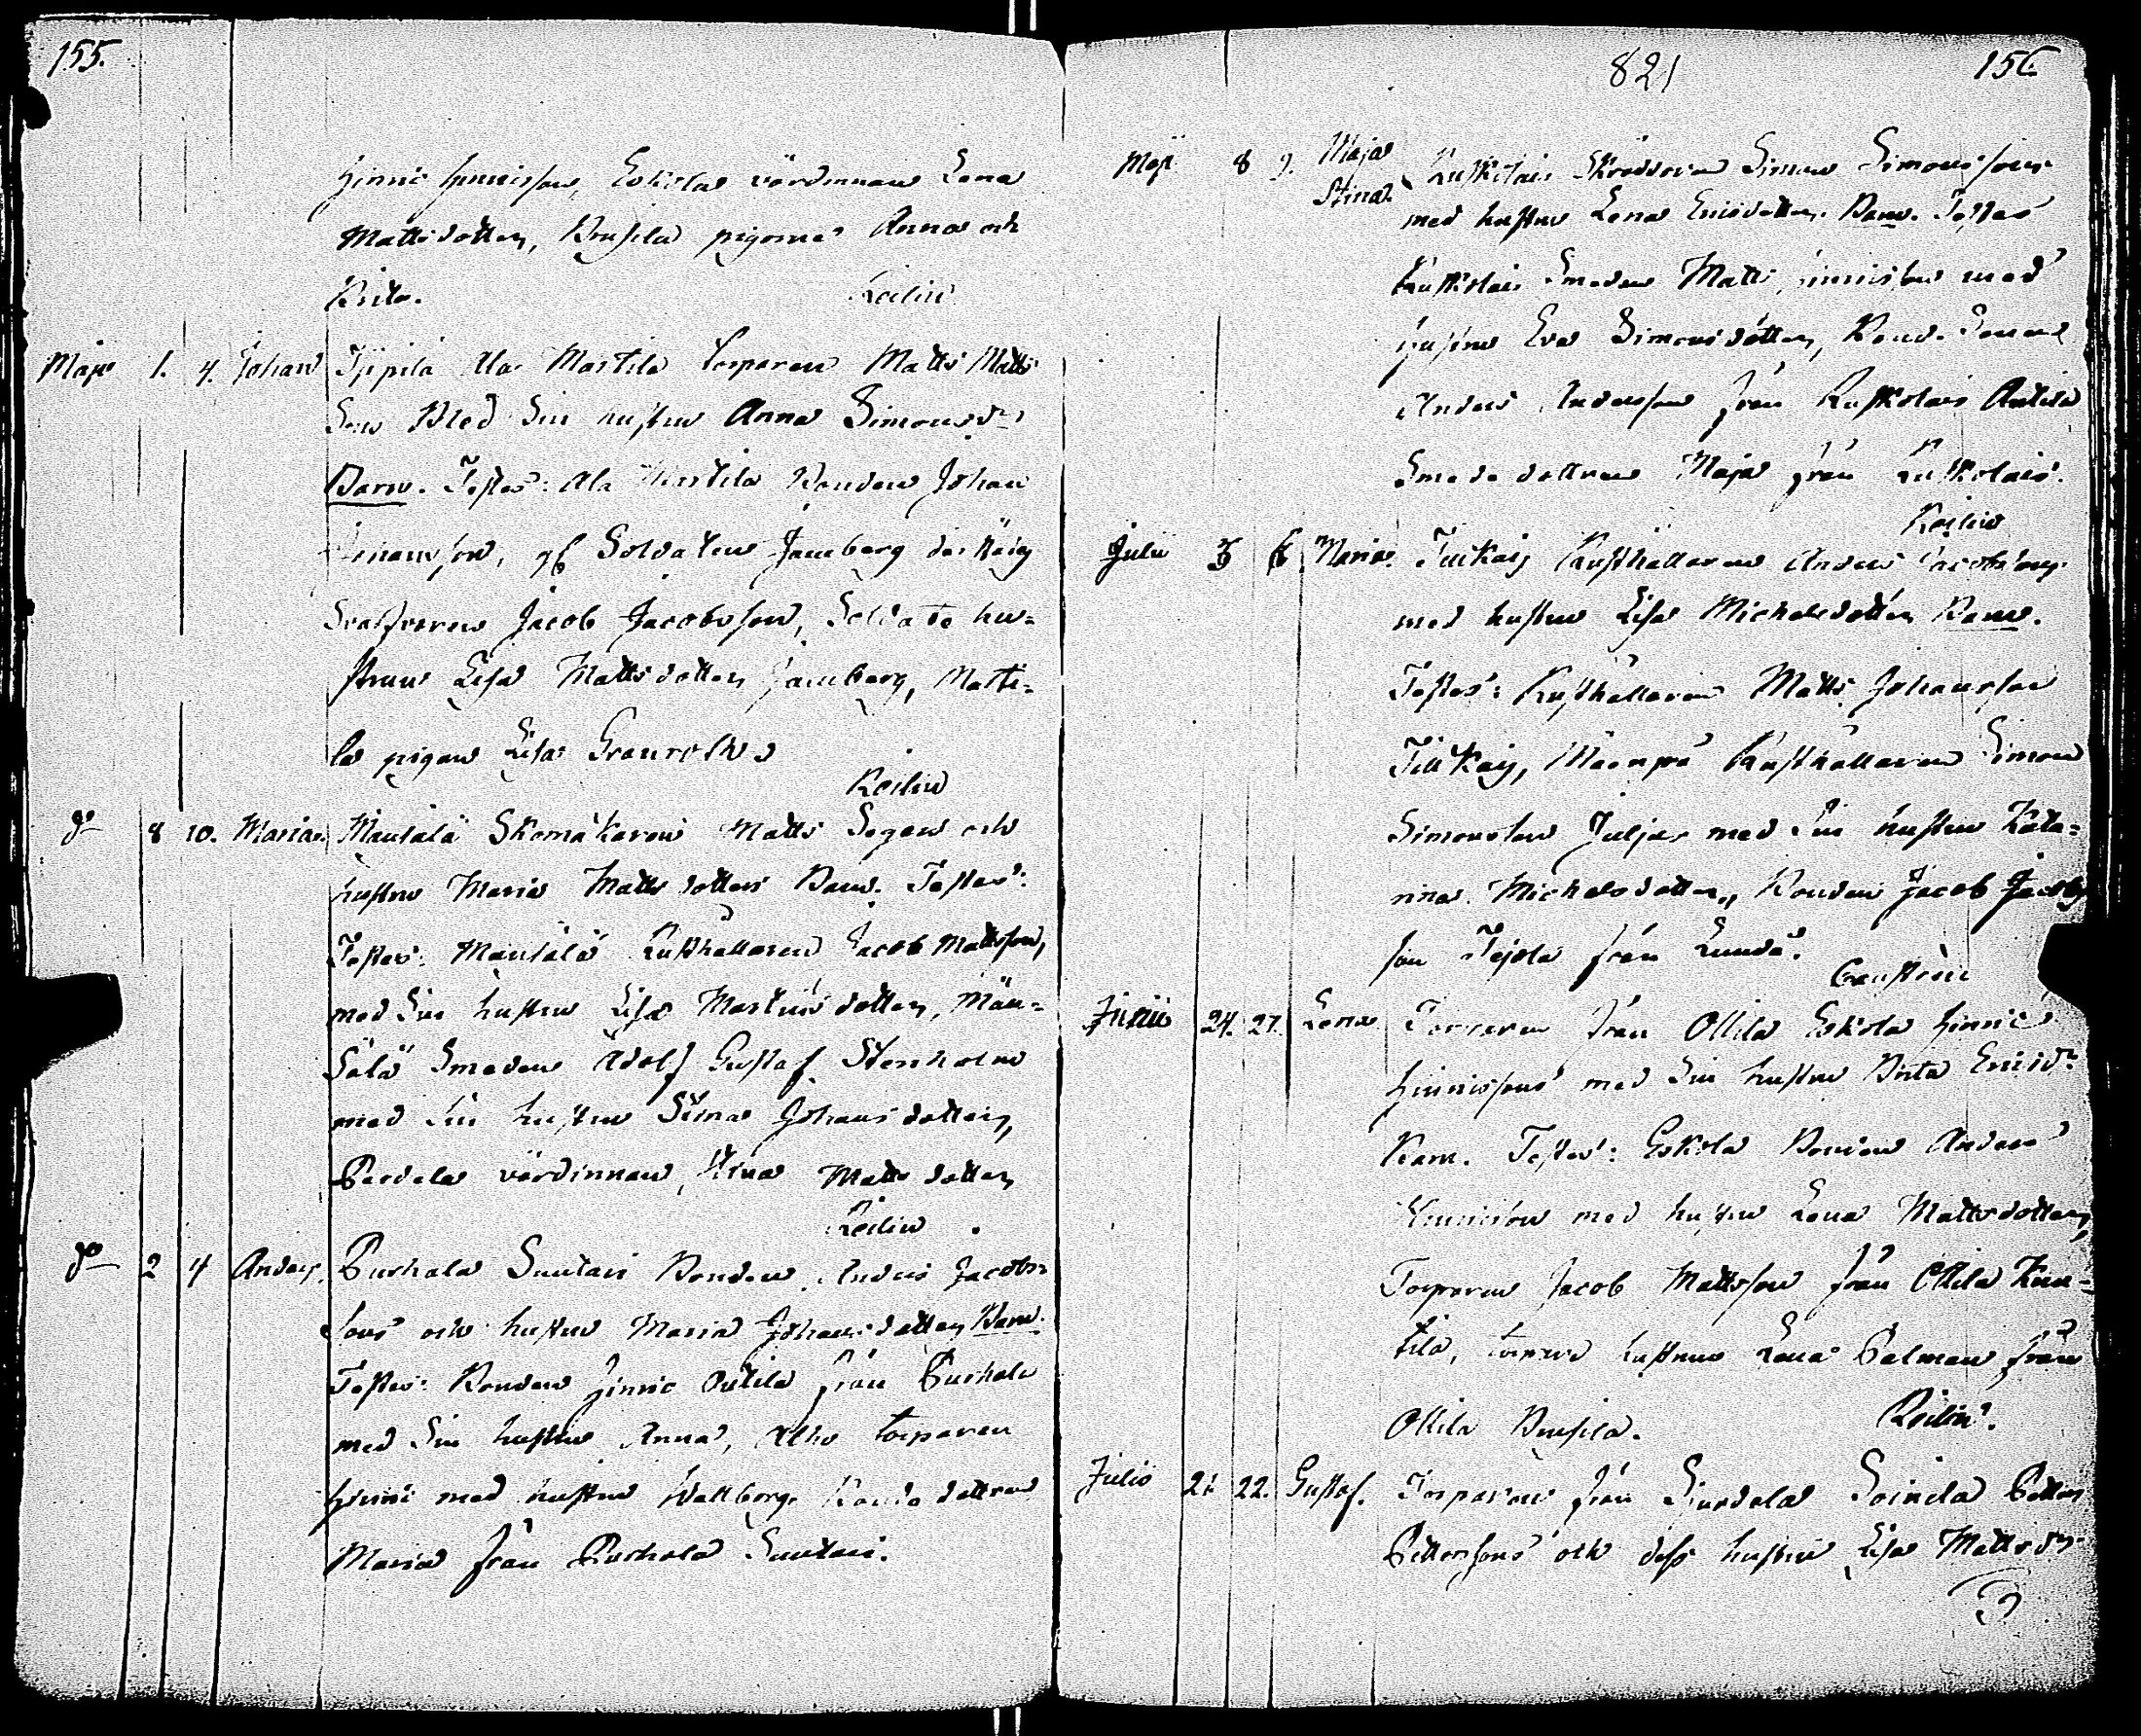 155.
Hinric Hinricsson, Eskola värdinnan Lena
Mattsdotter, Brusila pigorne Anna och
Brita. Roslin
Maji 1. 4. Johan Ala Martila torparen Matts Matts
Sons Med Sin hustru Anna Simonsdr
Barn. Testes: Ala Martila Bonden Johan
Soldaten Jamberg
Jacob Jacobsson, Soldate hu=
strun Lisa Mattsdotter Jamberg, Marti=
la pigan Lisa Granroth
Roslin
do 8 10. Maria. Mäntälä Skomakaren Matts Segers och
hustru Maria Mattsdotters Barn. Testes:
Testes: Mäntälä Rusthållaren Jacob Mattsson,
med Sin hustru Lisa Martinsdotter, Män=
tälä Smeden Adolf Gustaf Stenholm
med Sin hustru Stina Johansdotter,
Perdela värdinnan, Stina Mattsdotter
Roslin
do 2 4 Anders. Purhala Suutari Bonden Anders Jacobs=
sons och hustru Maria Johansdotters Barn.
Testes: Bonden Hinric Antila från Purhala
med Sin hustru Anna, Alho torparen
Hinric med hustru Wallborg, Bonde dottren
Maria från Purhala Suutari.
821 156
Maji 8 9. Maja
Stina. Skräddaren Simon Simonssons
med hustru Lena Ericsdotters Barn. Testes
Smeden Matts Hinricsson med
hustru Eva Simonsdotter, Bonde Sonen
Anders Andersson från Antila
Smede dottren Maja från
Roslin
Julii 3 6 Maria. Tuckaij Rusthållaren Anders Jacobssons
med hustru Lisa Michelsdotters Barn.
Testes: Rusthållaren Matts Johansson
Tuckaij, Mäenpä Rusthållaren Simon
Simonsson Juljas med Sin hustru Kata=
rina Michelsdotter, Bonden Jacob Jacobs
son från
Junii 24. 27. Lena Torparen från Ollila Eskola Hinric
Hinricssons med Sin hustru Brita Ericsdr
Barn. Testes: Eskola Bonden Anders
Hinricsson med hustru Lena Mattsdotter,
Torparen Jacob Mattsson från Ollila
tila, torpare hustrun Lena Palman från
Ollila Brusila. Roslin.
Julii 21 22. Gustaf. Torparen från Petter
Pettersons och dess hustru Lisa Mattsdr